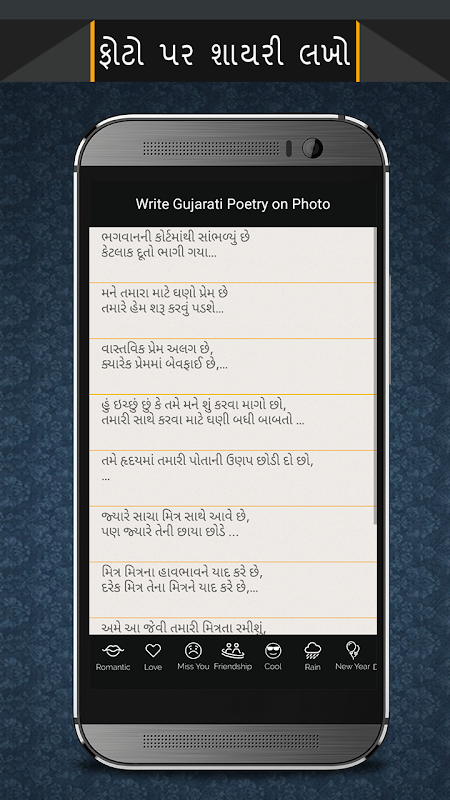 ફોટો પર શાયરી લખો
Write Gujarati Poetry on Photo
ભગવાનની કોર્ટમાંથી સાંભળ્યું છે
કેટલાક દૂતો ભાગી ગયા...
મને તમારા માટે ઘણો પ્રેમ છે
તમારે હેમ શરૂ કરવું પડશે...
વાસ્તવિક પ્રેમ અલગ છે,
ક્યારેક પ્રેમમાં બેવફાઈ છે,...
હું ઇચ્છું છું કે તમે મને શું કરવા માગો છો,
તમારી સાથે કરવા માટે ઘણી બધી બાબતો ...
તમે હૃદયમાં તમારી પોતાની ઉણપ છોડી દો છો,
...
જ્યારે સાચા મિત્ર સાથે આવે છે,
પણ જ્યારે તેની છાયા છોડે ...
મિત્ર મિત્રના હાવભાવને યાદ કરે છે,
દરેક મિત્ર તેના મિત્રને યાદ કરે છે,...
અમે આ જેવી તમારી મિત્રતા રમીશું,
Romantic Love Miss You Friendship Cool Rain New Year D